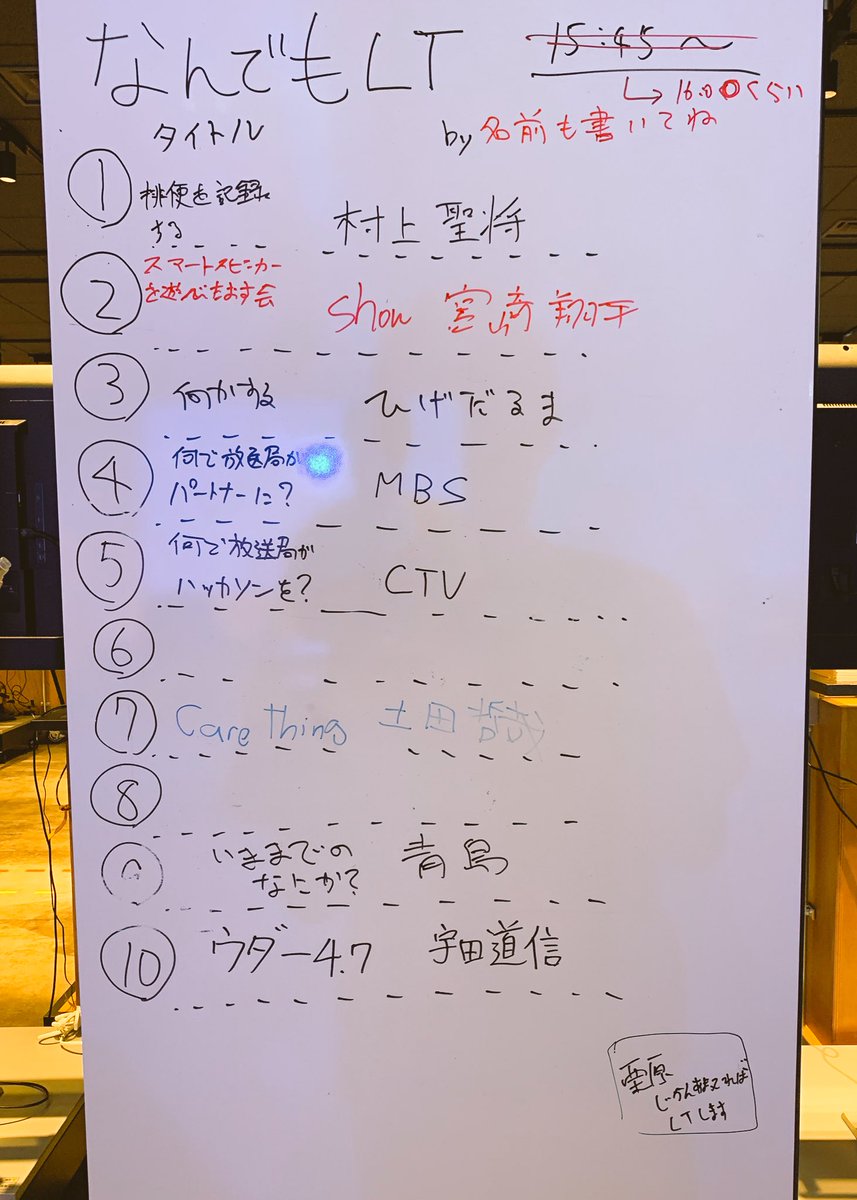 なんでもLT
15:45〜
↳16:00くらい
タイトル
by 名前も書いてね
① 排便を記録
する
村上 聖将
② スマートスピーカー
を遊びたおす会
show 宮崎 翔
③ 何かする ひげだるま
④ 何で放送局が
パートナーに?
MBS
⑤ 何で放送局が
ハッカソンを?
CTV
⑥
⑦ Care Thing 土田哲
⑧
いままでの
なにか?
青島
⑩ ウダー4.7 宇田道信
栗原
じかんあまれば
LTします